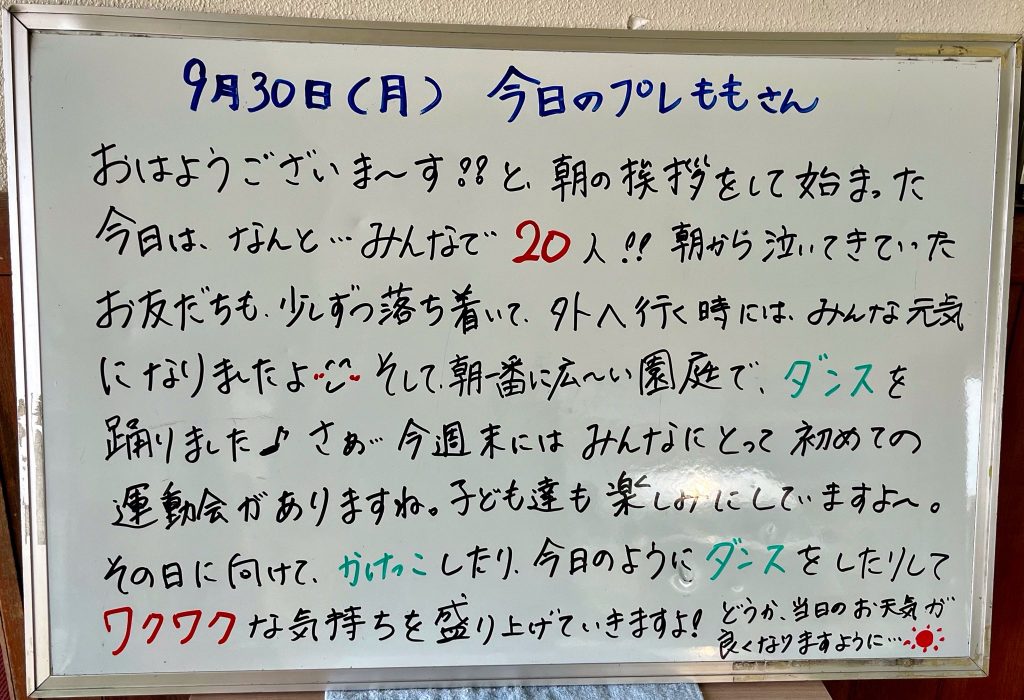 9月30日(月) 今日のプレももさん
おはようございま〜す!!と、朝の挨拶をして始まった
今日は、なんと…みんなで20人!!朝から泣いてきていった
お友だちも、少しずつ落ち着いて、外へ行く時には、みんな元気
になりましたよ^^そして、朝一番に広〜い園庭で、ダンスを
踊りました♪さぁ…今週末にはみんなにとって初めての
運動会がありますね。子ども達も楽しみにしていますよ〜。
その日に向けて、かけっこしたり、今日のようにダンスをしたりして
ワクワクな気持ちを盛り上げていきますよ!
どうか、当日のお天気が
良くなりますように…